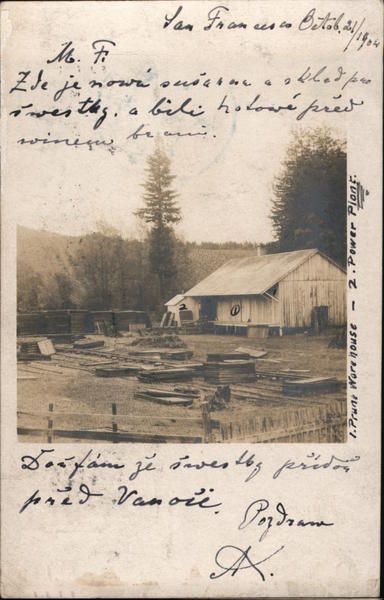 San Francesco Octob. 21/1904
M. F.
Zde je nová sušárna a sklad pro
švestky. a bili hotové před
winem
1
2
1. Prune Warehouse - 2. Power Plant.
Doufám že švestky přídou
před Vanoči.
Pozdraw
AK.